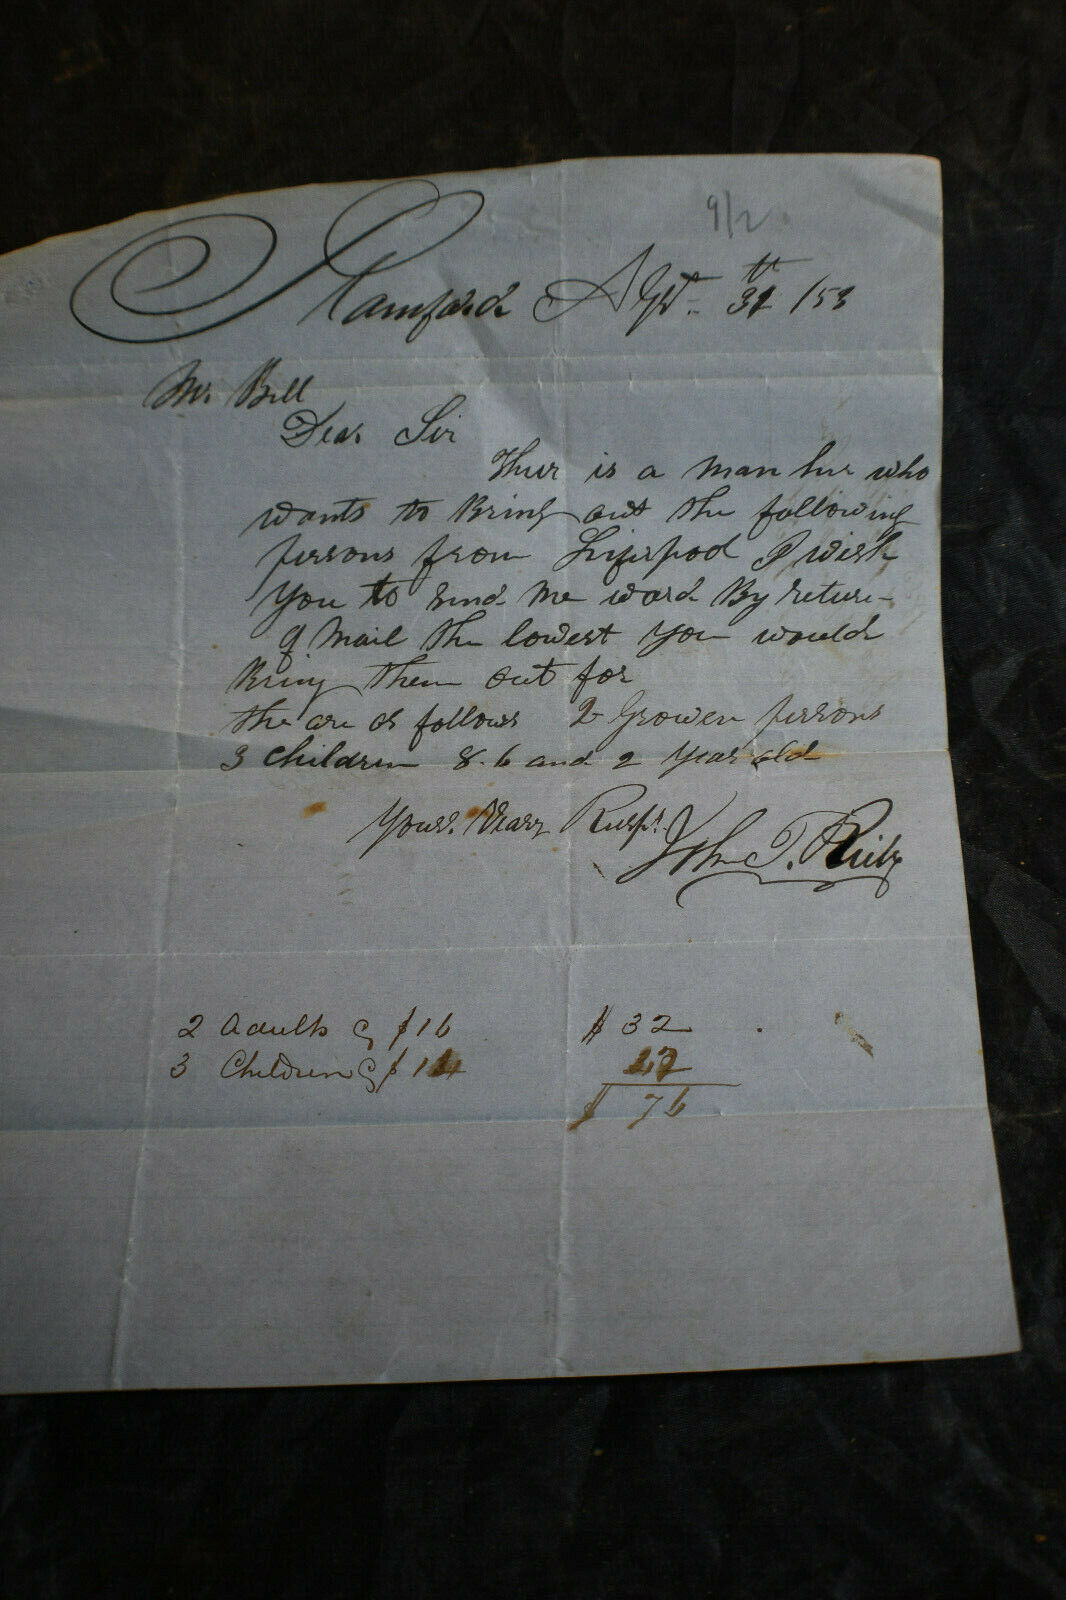 9/2
Stamford Sept. th /53
Mr. Bill
Dear Sir
Thier is a man hie who
wants to Bring out the following
persons from Liferpool I wish
you to send me word By return
of Mail the lowest you would
Bring them out for
the are as follows 2 Growen persons
3 Children 8.6 and 2 year old
Yours. Veary Resp.
John T.
2 Adults @ $16 $ 32
3 Children @ $
$ 76